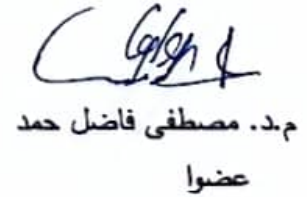 م.د. مصطفى فاضل حمد
عضوا